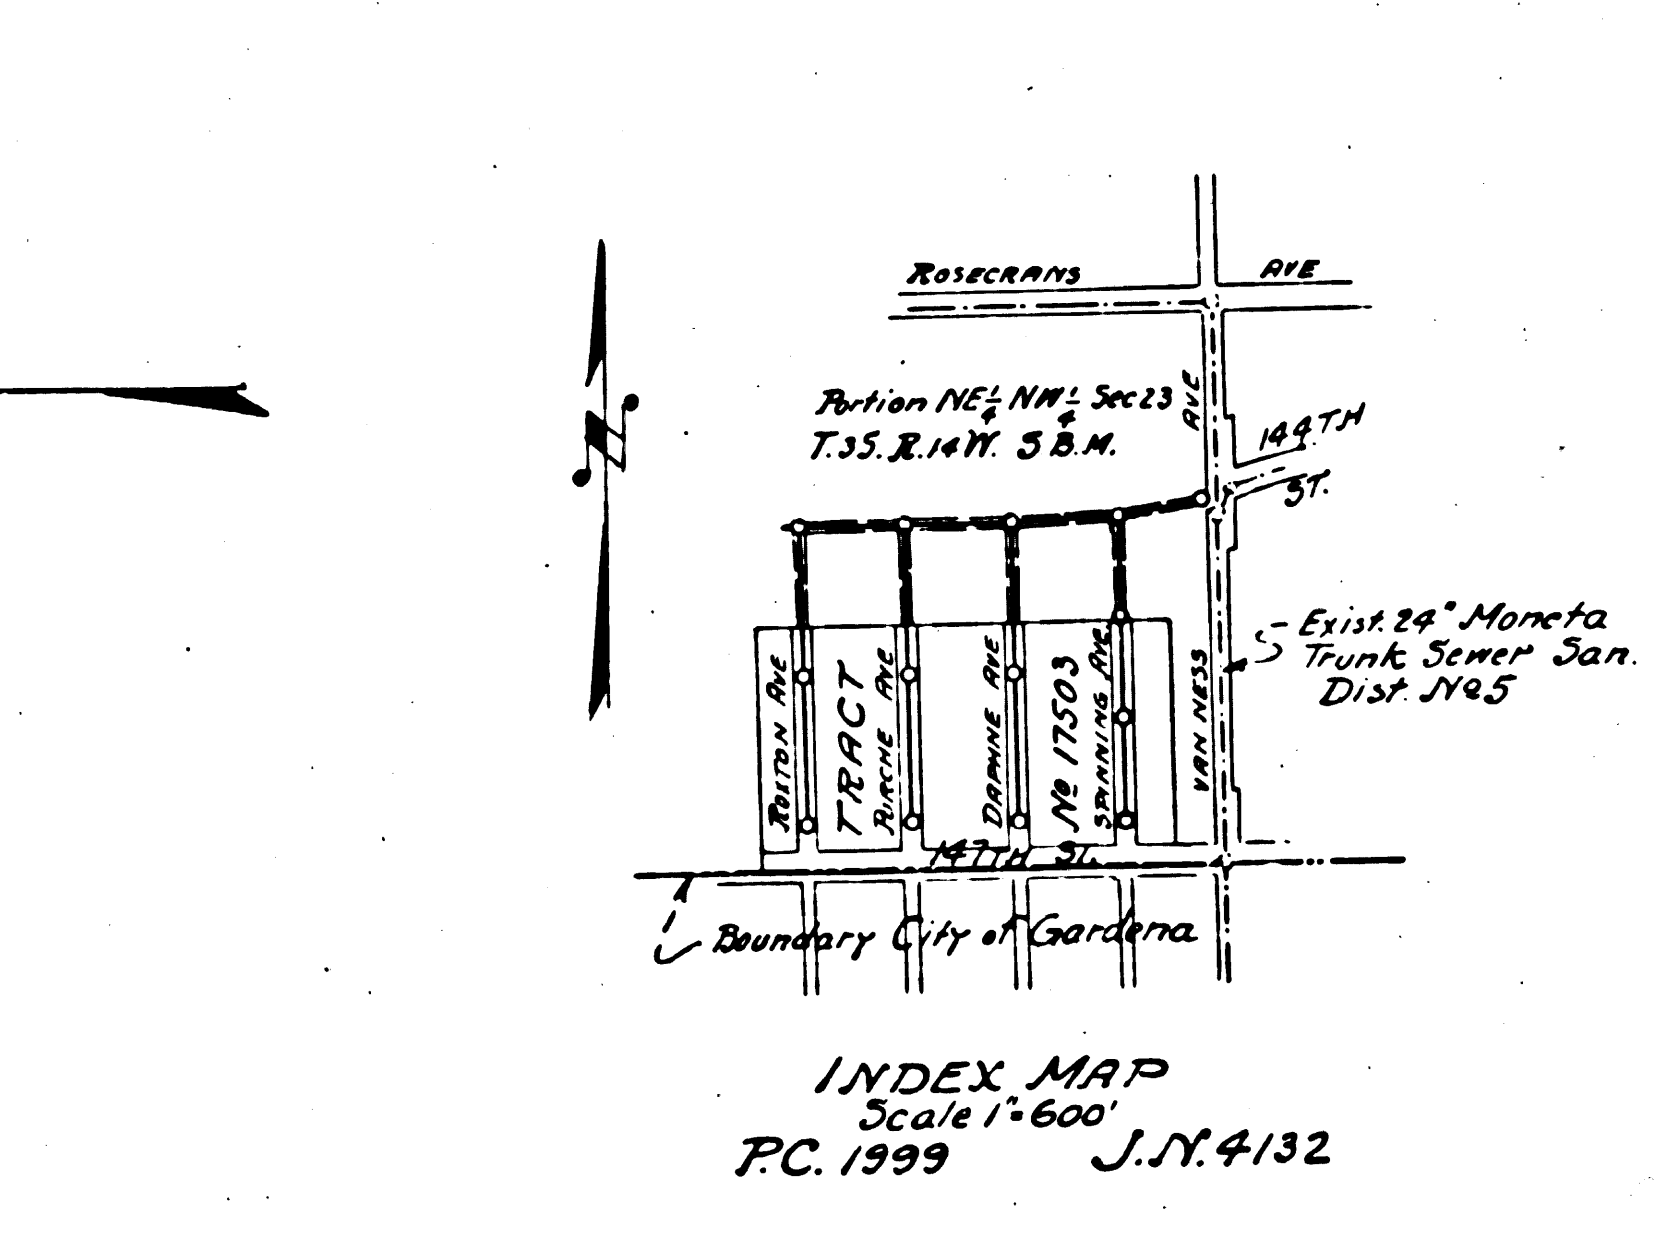 ROSECRANS AVE
Portion NE 1/4 NW 1/4 Sec 23
T.3S. R.14W. S B.M.
AVE
144TH
ST.
Exist. 24" Moneta
Trunk Sewer San.
Dist. No 5
VAN NESS
ROXTON AVE
TRACT
PURCHE AVE
DAPHNE AVE
No 17503
SPINNING AVE.
147TH ST.
Boundary City of Gardena
N
INDEX MAP
Scale 1"=600'
P.C. 1999 J.N. 4132